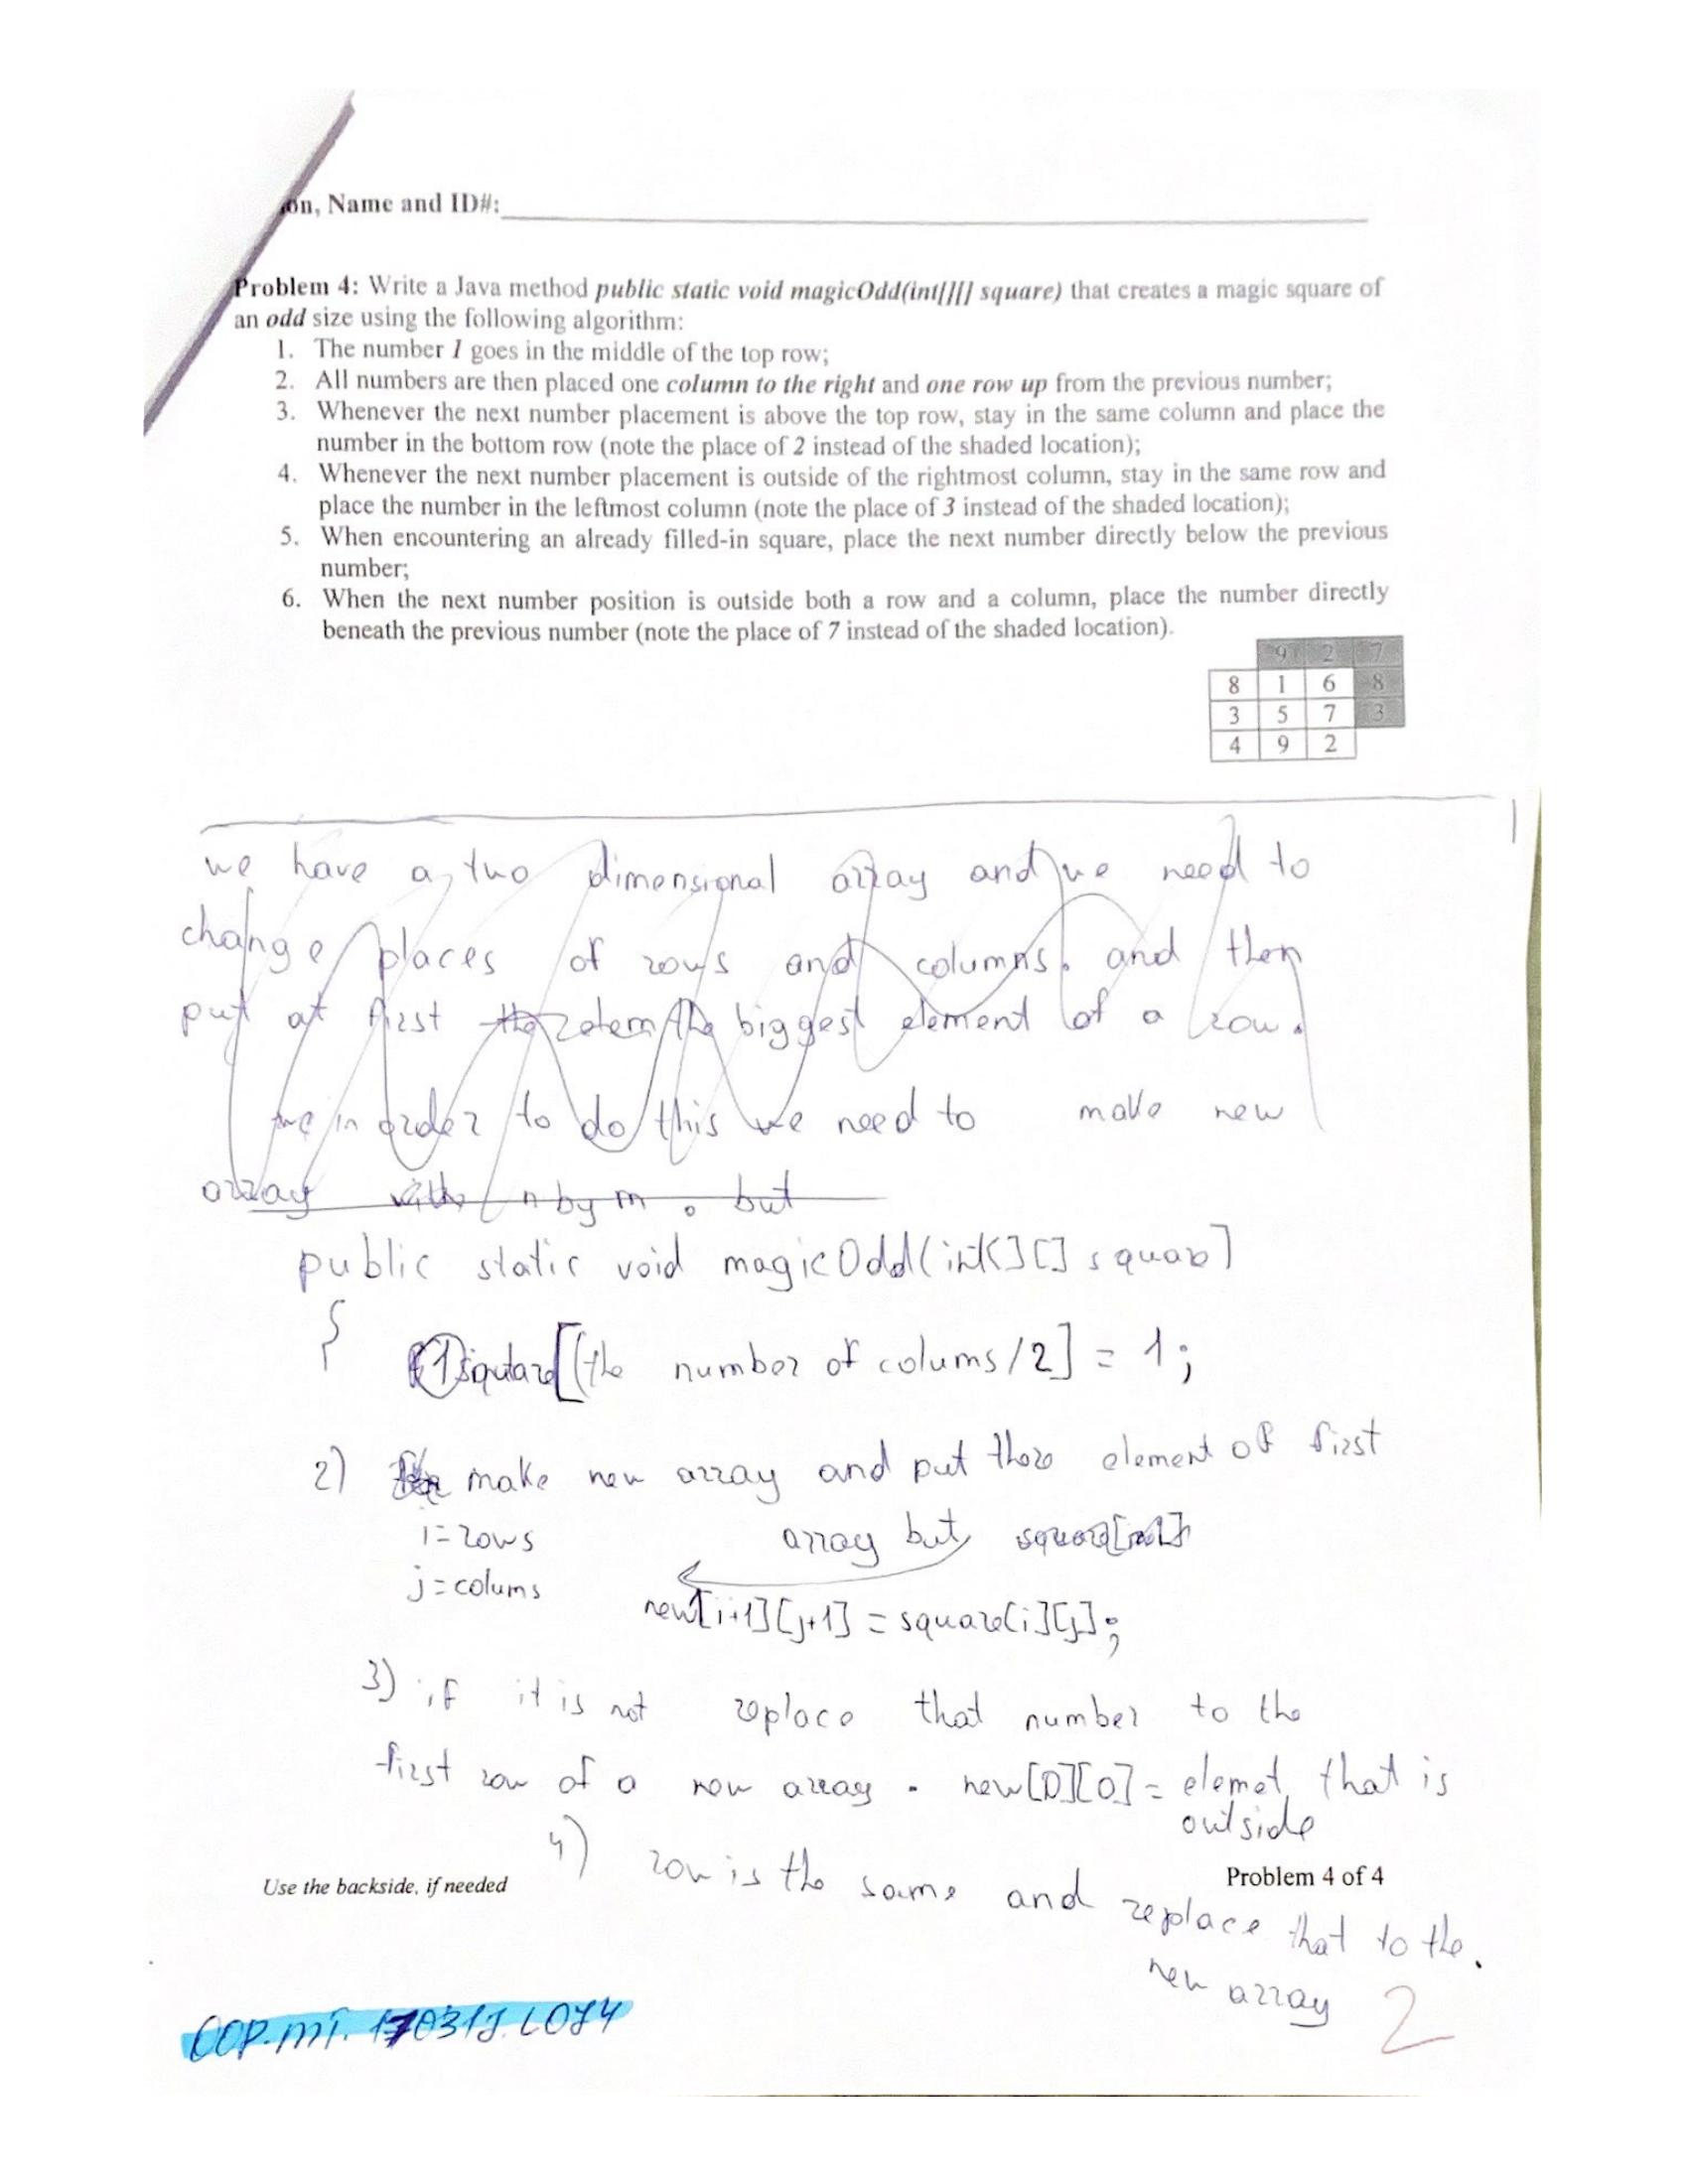 on, Name and ID#:
Problem 4: Write a Java method public static void magicOdd(int[][] square) that creates a magic square of
an odd size using the following algorithm:
1. The number 1 goes in the middle of the top row;
2. All numbers are then placed one column to the right and one row up from the previous number;
3. Whenever the next number placement is above the top row, stay in the same column and place the
number in the bottom row (note the place of 2 instead of the shaded location);
4. Whenever the next number placement is outside of the rightmost column, stay in the same row and
place the number in the leftmost column (note the place of 3 instead of the shaded location);
5. When encountering an already filled-in square, place the next number directly below the previous
number;
6. When the next number position is outside both a row and a column, place the number directly
beneath the previous number (note the place of 7 instead of the shaded location).
9 2 7
8 1 6 8
3 5 7 3
4 9 2
we have a two dimensional array and we need to
change places of rows and columns. and then
put at first the biggest element of a row.
in order to do this we need to make new
array with n by m. but
public static void magicOdd(int[][] square]
{
1) square[(the number of colums/2] = 1;
2) make new array and put there element of first
i=rows array but
j=colums
new[i+1][j+1] = square[i][j];
3) if it is not replace that number to the
first row of a new array. new[0][0] = elemet that is
outside
4) row is the same and replace that to the
new array 2
Use the backside, if needed
Problem 4 of 4